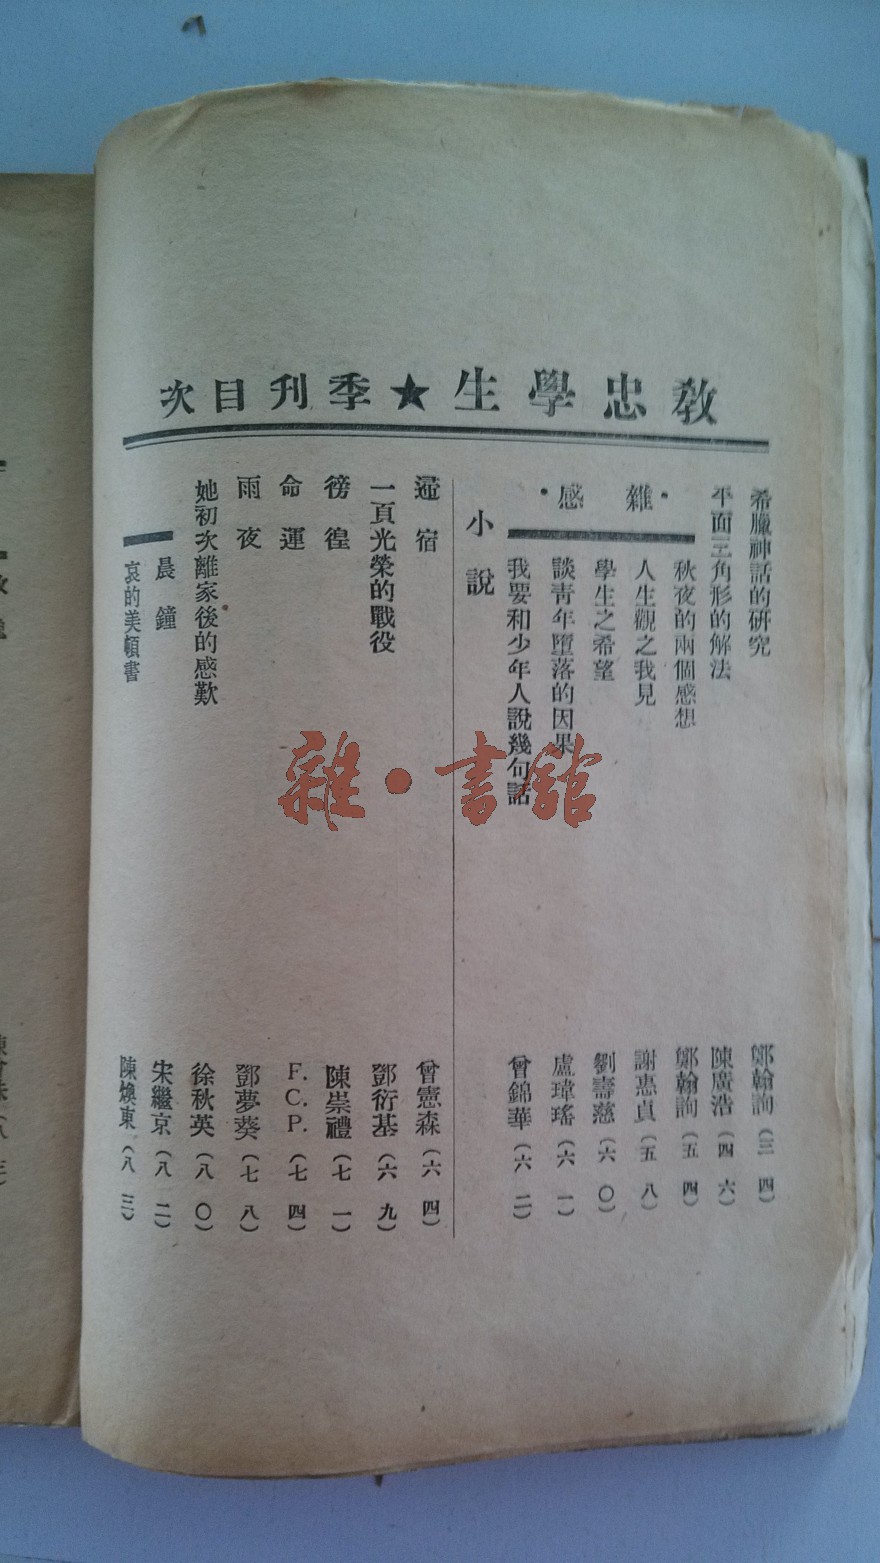 教忠學生★季刊目次
希臘神話的研究 鄭翰詢（三四）
平面三角形的解法 陳廣浩（四六）
雜感
秋夜的兩個感想 鄭翰詢（五四）
人生觀之我見 謝惠貞（五八）
學生之希望 劉壽慈（六〇）
談青年墮落的因果 盧瑋瑤（六一）
我要和少年人說幾句話 曾錦華（六二）
小說
宿 曾憲森（六四）
一頁光榮的戰役 鄧衍基（六九）
徬徨 陳崇禮（七一）
命運 F.C.P.（七四）
雨夜 鄧夢葵（七八）
她初次離家後的感歎 徐秋英（八〇）
晨鐘 宋繼京（八二）
哀的美頓書 陳煥東（八三）
雜·書館